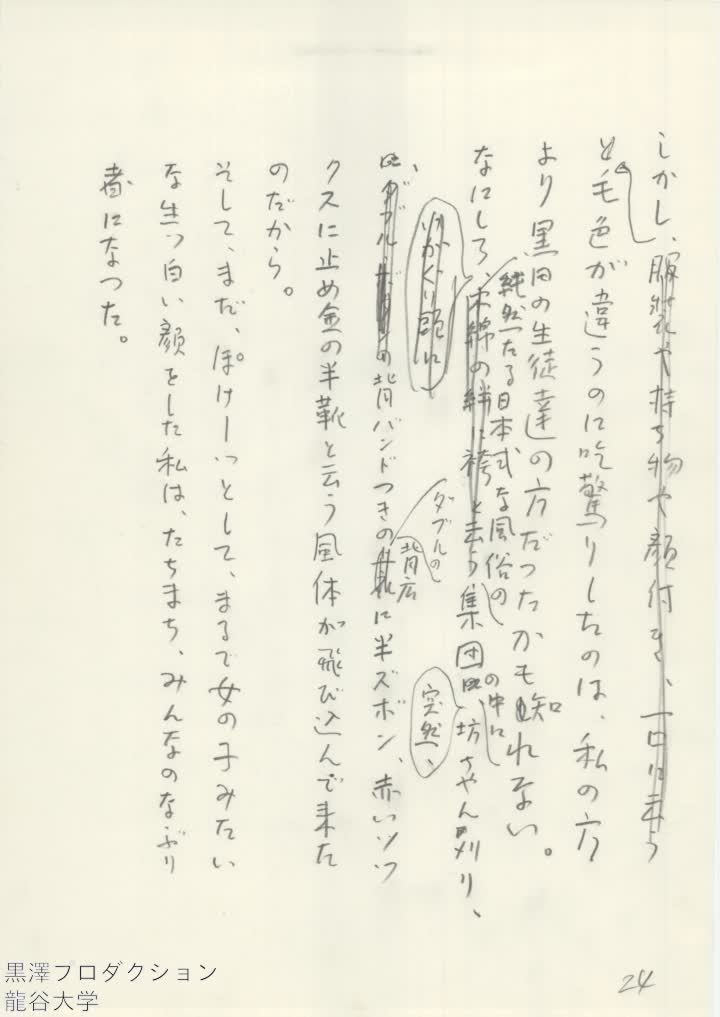 しかし、服装や持ち物や顔付き、一口に云う
と毛色が違うのに吃驚りしたのは、私の方
より黒田の生徒達の方だったかも知れない。
純然たる日本式な風俗の
なにしろ、木綿の絣に袴と云う集団の中に
突然、
坊ちゃん刈り、
いがぐり頭に
ダブルの
背広
の背バンドつきの
に半ズボン、赤いソツ
クスに止め金の半靴と云う風体が飛び込んで来た
のだから。
そして、まだ、ぽけーっとして、まるで女の子みたい
な生っ白い顔をした私は、たちまち、みんなのなぶり
者になった。
24
黒澤プロダクション
龍谷大学